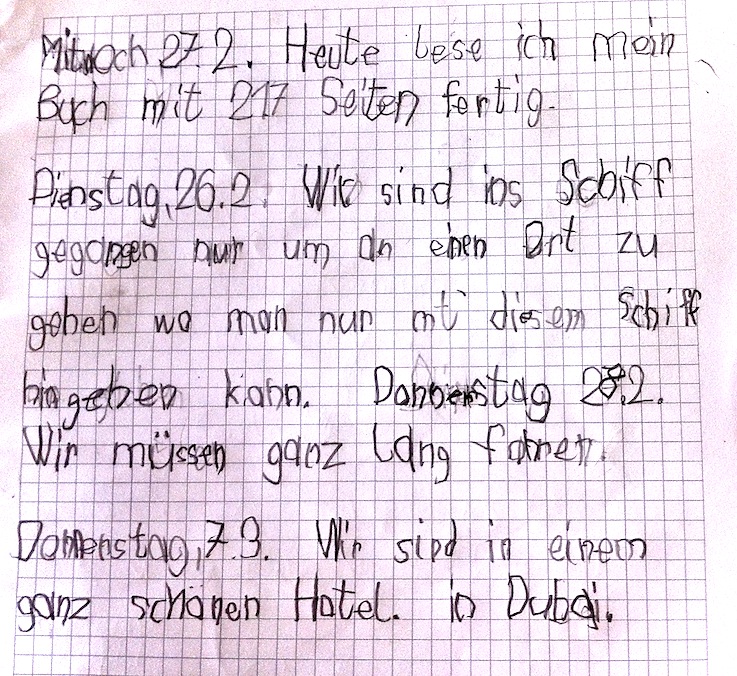 Mittwoch 27.2. Heute lese ich mein
Buch mit 217 Seiten fertig.
Dienstag, 26.2. Wir sind ins Schiff
gegangen nur um an einen Ort zu
gehen wo man nur mit diesem Schiff
hingehen kann. Donnerstag 28.2.
Wir müssen ganz lang fahren.
Donnenstag, 7.3. Wir sind in einem
ganz schönen Hotel. in Dubai.